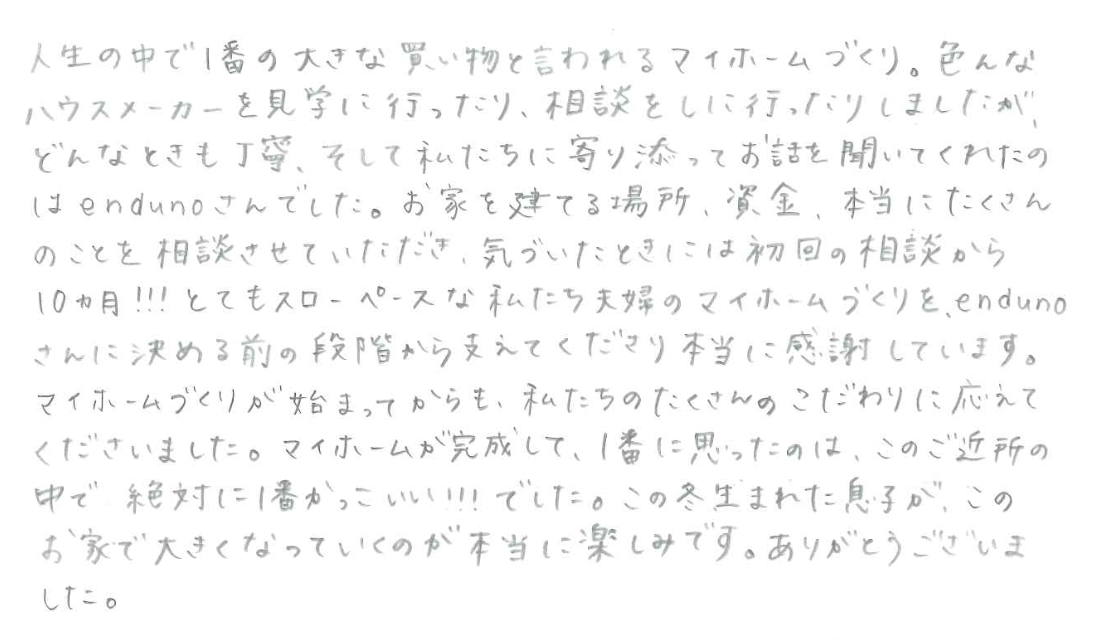 人生の中で1番の大きな買い物と言われるマイホームづくり。色んな
ハウスメーカーを見学に行ったり、相談をしに行ったりしましたが、
どんなときも丁寧、そして私たちに寄り添ってお話を聞いてくれたの
はendunoさんでした。お家を建てる場所、資金、本当にたくさん
のことを相談させていただき、気づいたときには初回の相談から
10ヵ月!!!とてもスローペースな私たち夫婦のマイホームづくりを、enduno
さんに決める前の段階から支えてくださり本当に感謝しています。
マイホームづくりが始まってからも、私たちのたくさんのこだわりに応えて
くださいました。マイホームが完成して、1番に思ったのは、このご近所の
中で絶対に1番かっこいい!!!でした。この冬生まれた息子が、この
お家で大きくなっていくのが本当に楽しみです。ありがとうございま
した。